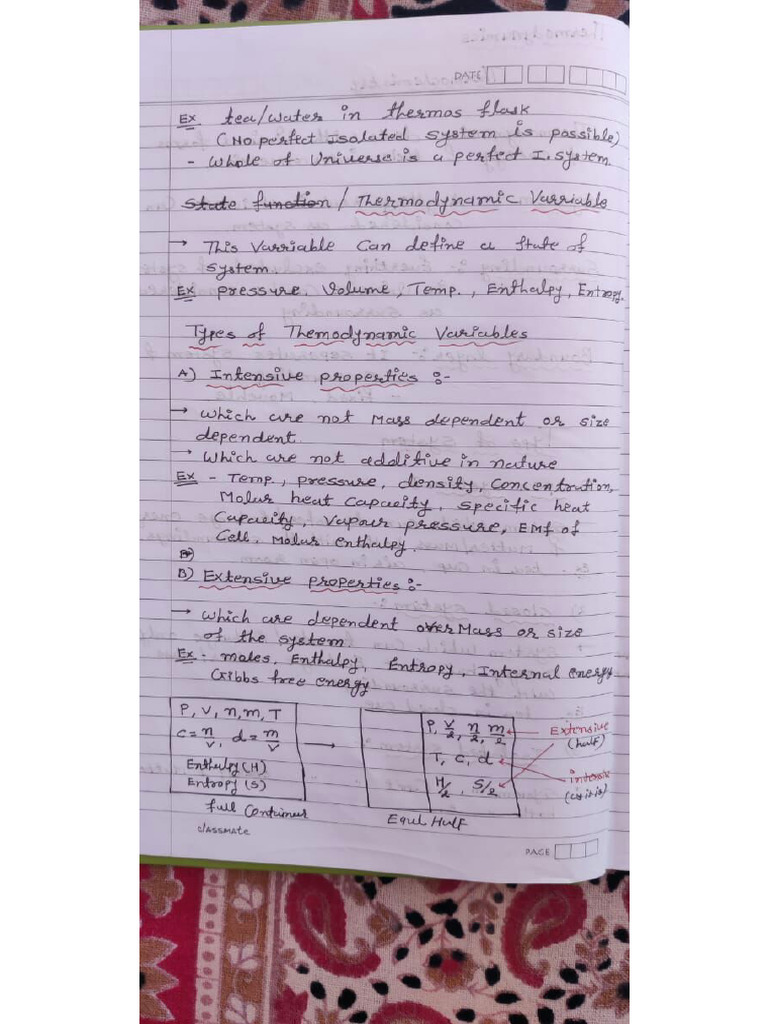 DATE
Ex tea/water in thermos flask
(No perfect Isolated system is possible)
- Whole of Universe is a perfect I. system
State function / Thermodynamic Varriable
→ This Varriable Can define a state of
system.
Ex pressure, Volume, Temp., Enthalpy, Entropy.
Types of Themodynamic Variables
A) Intensive properties :-
→ which are not Mass dependent or size
dependent.
→ which are not additive in nature
Ex - Temp, pressure, density, Concentration,
Molar heat Capacity, specific heat
Capacity, Vapour pressure, EMf of
Cell, Molar enthalpy.
B)
B) Extensive properties :-
→ which are dependent over Mass or size
of the system.
Ex - moles, Enthalpy, Entropy, Internal energy
Gibbs free energy
P, V, n, m, T
C = n/V, d = m/V
Enthalpy (H)
Entropy (S)
full Container
→
P, V/2, n/2, m/2
T, C, d
H/2, S/2
Equl Half
Extensive
(half)
intensive
(as it is)
classmate
PAGE